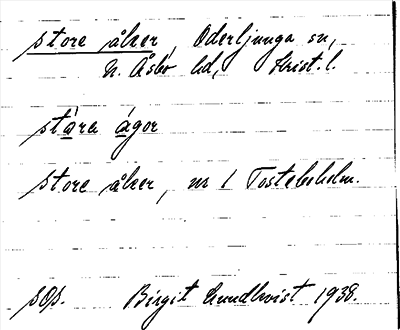 store åker, Oderljunga sn,
N. Åsbo hd, Krist. l.
stàra ágor
store åker, nr 1 Tostebeholm.
sOp. Birgit Lundkvist 1938.